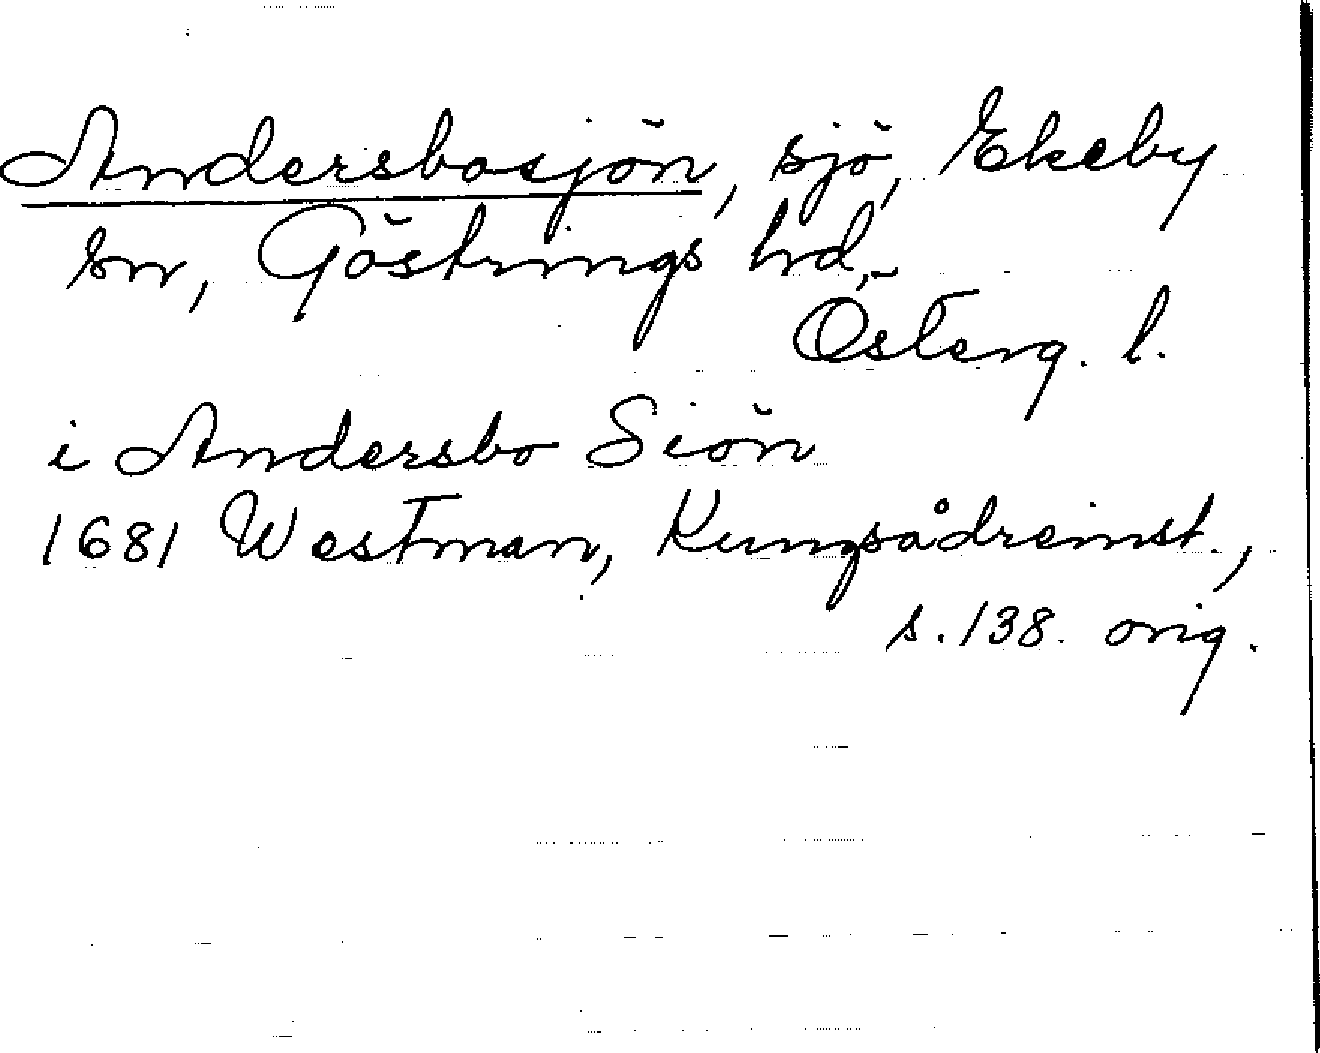 Andersbosjön, sjö, Ekeby
sn, Göstrings hd,
Österg. l.
i Andersbo Siön
1681 Westman, Kungsådreinst.,
s. 138. orig.